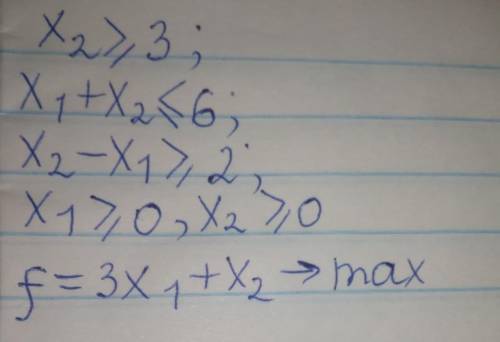 x₂ ⩾ 3;
x₁ + x₂ ⩽ 6;
x₂ − x₁ ⩾ 2;
x₁ ⩾ 0, x₂ ⩾ 0
f = 3x₁ + x₂ → max